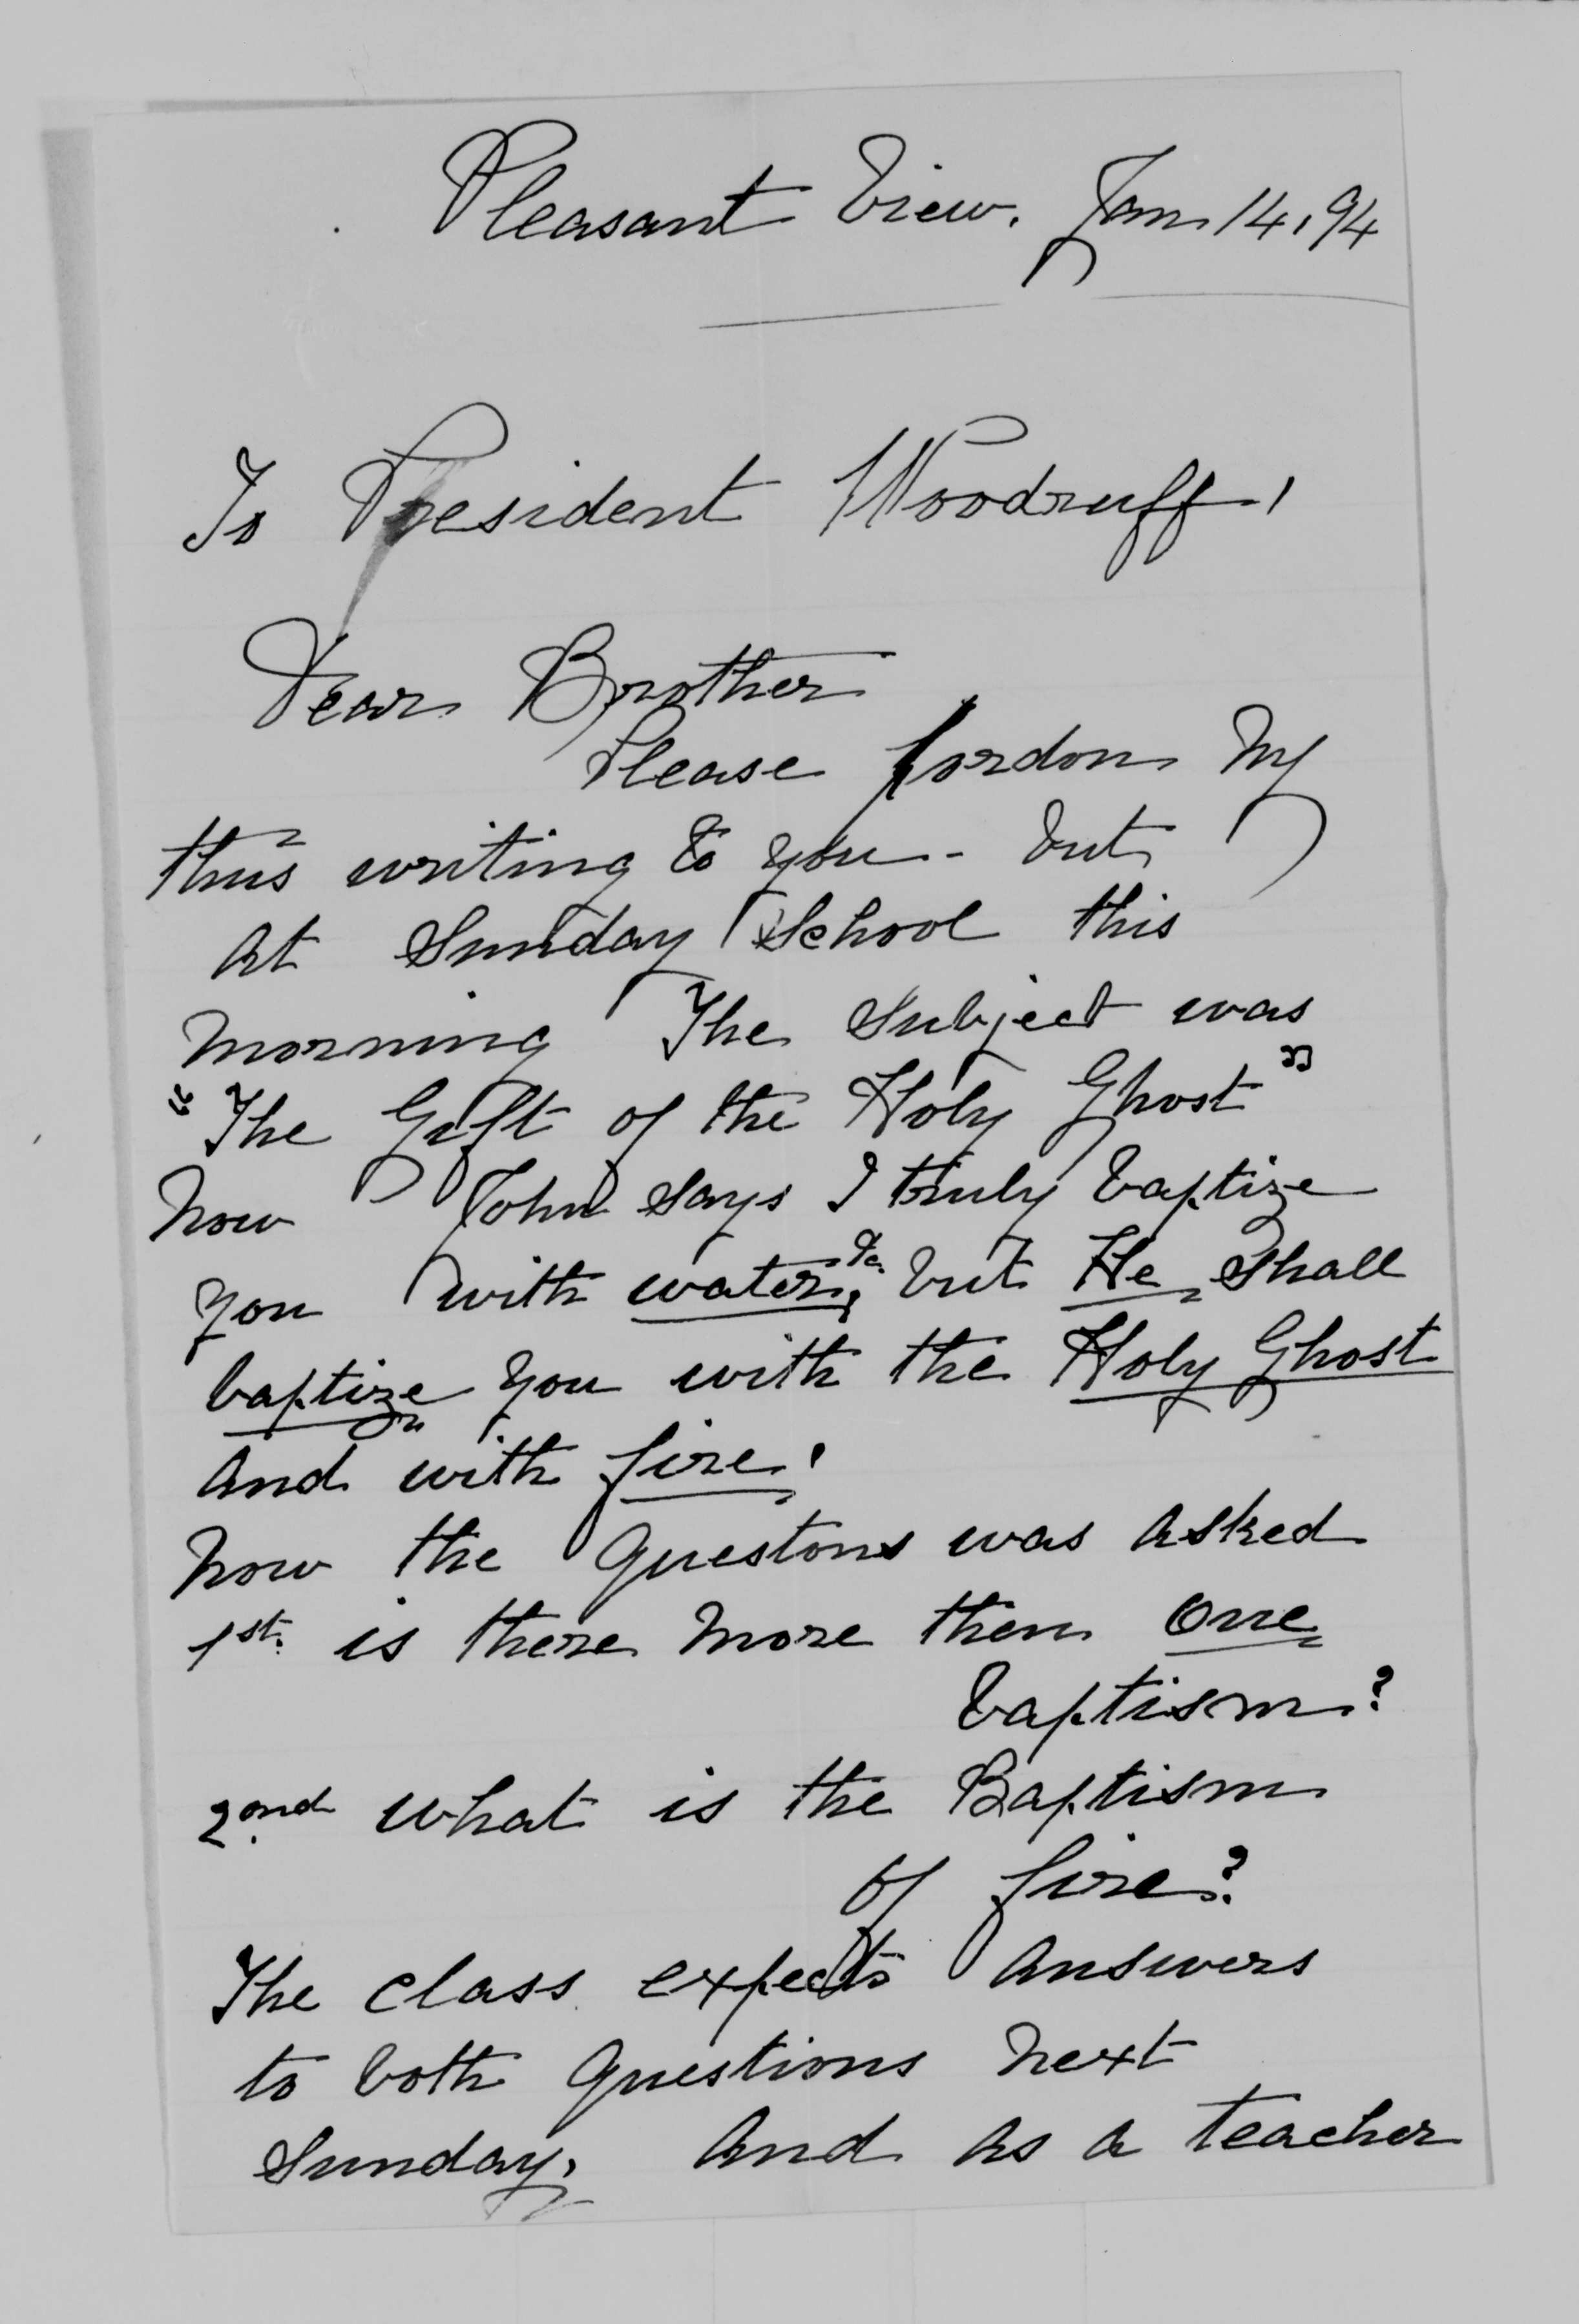 Pleasant View. Jan 14, 94
To President Woodruff,
Dear Brother
Please pardon my
thus writing to you - but
at Sunday School this
morning The Subject was
"The Gift of the Holy Ghost"
now John says I truly baptize
you with water, &c. but He shall
baptize you with the Holy Ghost
and with fire.
now the Questons was asked
1st. is there more then One
baptism?
2ond what is the Baptism
of fire?
The class expects answers
to both Questions next
Sunday, and as a teacher